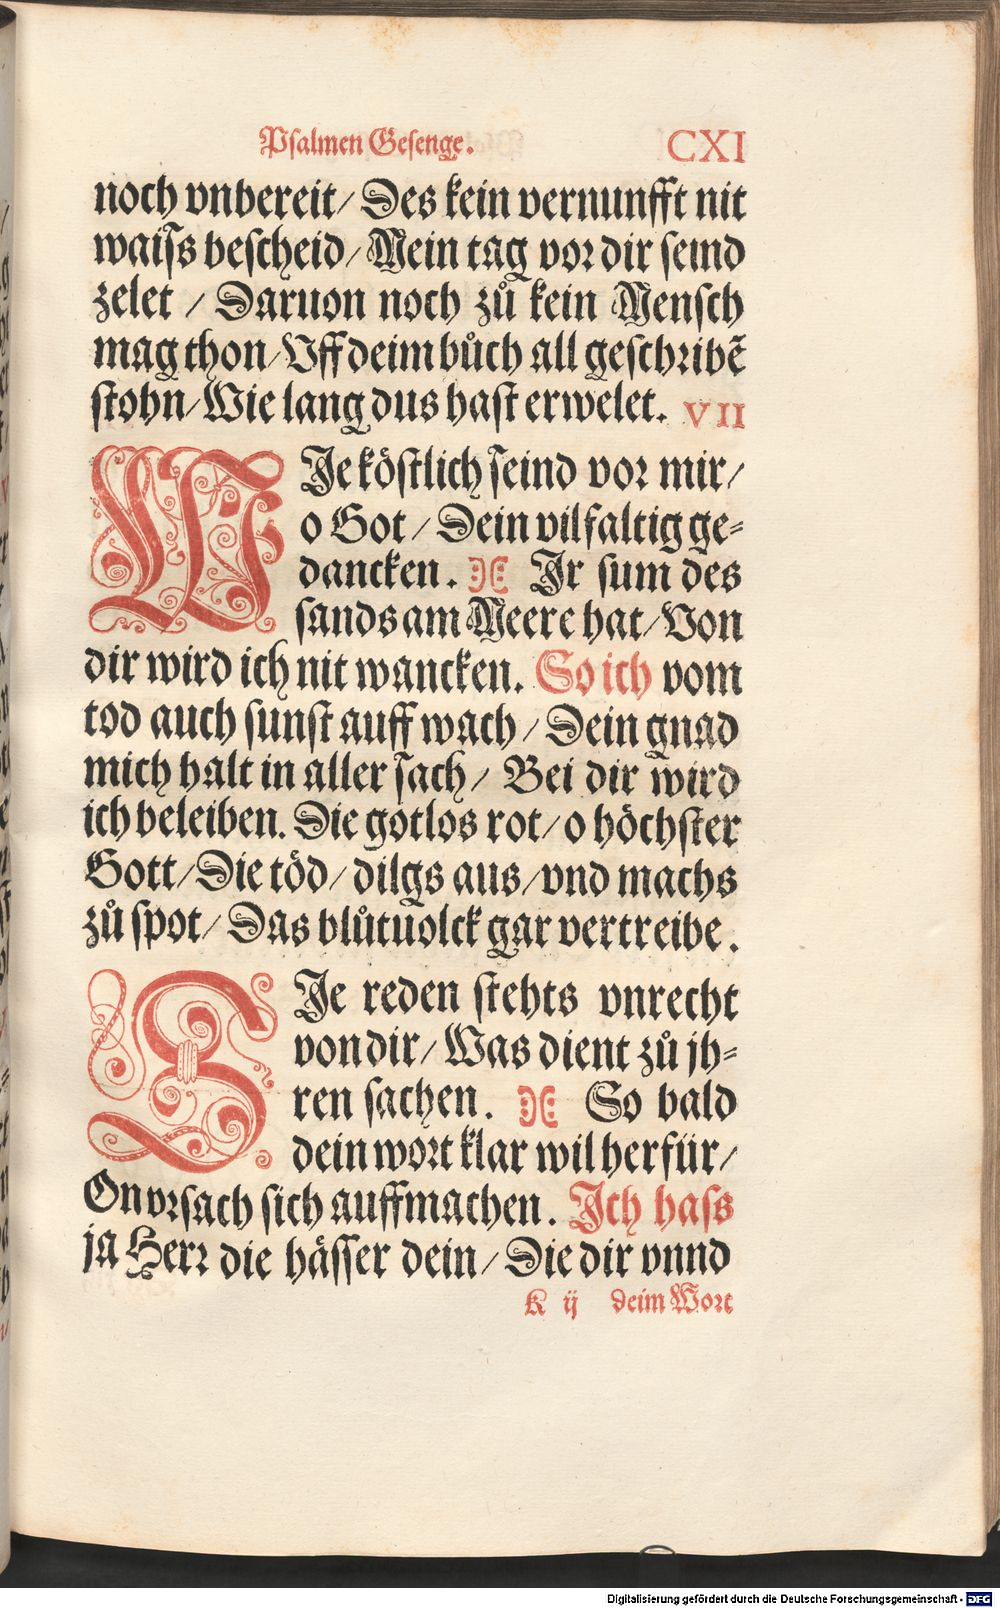 Psalmen Gesenge. CXI
noch vnbereit/ Des kein vernunfft nit
waiſs beſcheid/ Mein tag vor dir ſeind
zelet / Daruon noch zů kein Menſch
mag thon/ Vff deim bůch all geſchribẽ
ſtohn/ Wie lang dus haſt erwelet. VII
WJe köſtlich ſeind vor mir/
o Got / Dein vilfaltig ge⸗
dancken. Jr ſum des
ſands am Meere hat/ Von
dir wird ich nit wancken. So ich vom
tod auch ſunſt auff wach / Dein gnad
mich halt in aller ſach / Bei dir wird
ich beleiben. Die gotlos rot/ o höchſter
Gott/ Die töd/ dilgs aus/ vnd machs
zů ſpot/ Das blůtuolck gar vertreibe.
SJe reden ſtehts vnrecht
von dir/ Was dient zů jh⸗
ren ſachen. So bald
dein wort klar wil herfür/
On vrſach ſich auffmachen. Jch haſs
ja Herr die häſſer dein/ Die dir vnnd
K ij deim Wort
Digitalisierung gefördert durch die Deutsche Forschungsgemeinschaft - DFG